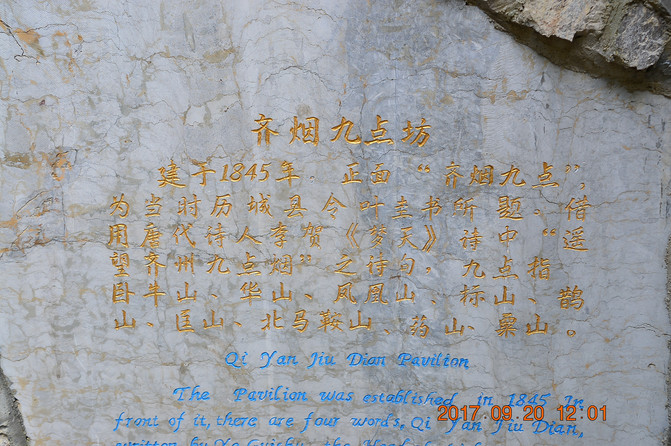 齐烟九点坊
建于1845年，正面“齐烟九点”，
为当时历城县令叶圭书所题。借
用唐代诗人李贺《梦天》诗中“遥
望齐州九点烟”之诗句，九点指
卧牛山、华山、凤凰山、标山、鹊
山、匡山、北马鞍山、药山、粟山。
Qi Yan Jiu Dian Pavilion
The Pavilion was established in 1845 In
front of it, there are four words. Qi Yan Jiu Dian,
2017.09.20 12:01